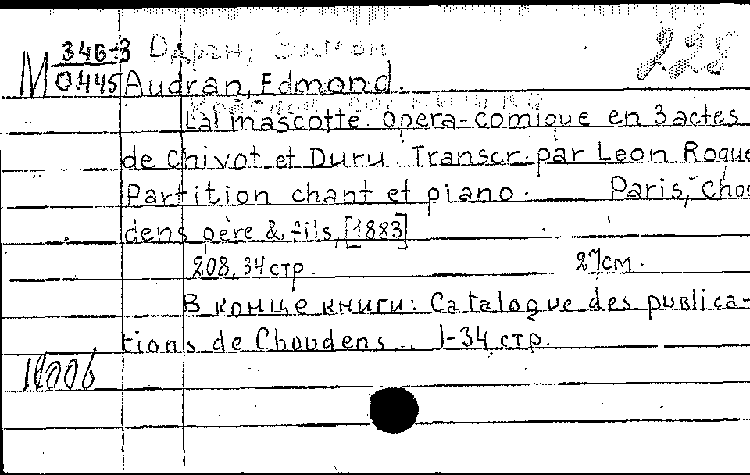 М 346-3
0445 Audran, Edmond.
La mascotte. Opera-comique en 3 actes
de Chivot et Duru. Transcr. par Leon Roque
Partition chant et piano. Paris, Chou
dens père & fils, [1883]
208, 34 стр. 27см.
В конце книги: Catalogue des publica-
tions de Choudens.. 1-34 стр.